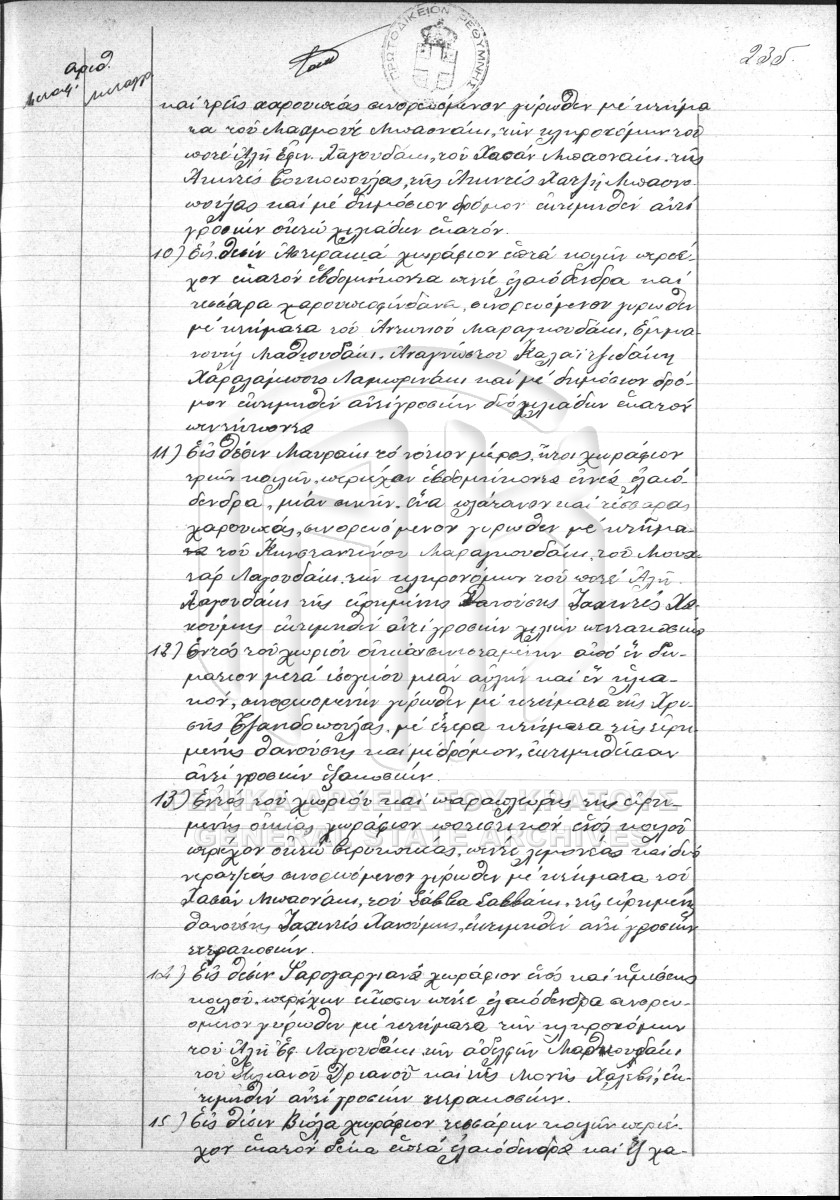 ΠΡΩΤΟΔΙΚΕΙΟΝ ΡΕΘΥΜΝΗΣ
235.
αριθ.
μεταφ. μεταγρ
καὶ τρεῖς χαρουπιάς συνορευόμενον γύρωθεν μέ κτήμα
τα τοῦ Μαχμούτ Μπασονάκι, τῶν κληρονόμων τοῦ
ποτέ Ἀλῆ Εφεν. Λαγουδάκι, τοῦ Χασάν Μπασονάκι, τῆς
Χατζῆ Μπασονο
πούλας καὶ μέ δημόσιον δρόμον ἐκτιμηθέν ἀντί
γροσίων ὀκτώ χιλιάδων ἑκατόν.
10) Εἰς θέσιν χωράφιον ἑπτά κοιλῶν περιέ
χον ἑκατόν ἑβδομήκοντα πέντε ἐλαιόδενδρα καὶ
τέσσαρα χαρουπόδενδρα, συνορευόμενον γύρωθεν
μέ κτήματα τοῦ Ἀντωνίου Μαραγκουδάκι, Ἐμμα-
νουήλ Μαθιουδάκι, Ἀναγνώστου Καλαϊτζιδάκη
Χαραλάμπους καὶ μέ δημόσιον δρό-
μον ἐκτιμηθέν ἀντί γροσίων δύο χιλιάδων ἑκατόν
πεντήκοντα
11) Εἰς θέσιν Μαυράκι τό νότιον μέρος, ἤτοι χωράφιον
τριῶν κοιλῶν, περιέχον ἑβδομήκοντα ἐννέα ἐλαιό-
δενδρα, μίαν συκῆν, ἕνα πλάτανον καὶ τέσσαρας
χαρουπιάς, συνορευόμενον γύρωθεν μέ κτήμα-
τα τοῦ Κωνσταντίνου Μαραγκουδάκι, τοῦ Μουχ
τάρ Λαγουδάκι, τῶν κληρονόμων τοῦ ποτέ Ἀλῆ
Λαγουδάκι τῆς εἰρημένης θανούσης Ζαχιντέ Χα
νούμης ἐκτιμηθέν ἀντί γροσίων χιλίων πεντακοσίων
12) Ἐντός τοῦ χωρίου οἰκίαν συνισταμένην ἀπό ἕν δω-
μάτιον μετά ἰσογείου μίαν αὐλήν καὶ ἕν ἡλια-
κόν, συνορευομένην γύρωθεν μέ κτήματα τῆς Χρι-
σῆς μέ ἕτερα κτήματα τῆς εἰρη-
μένης θανούσης καὶ μέ δρόμον, ἐκτιμηθεῖσαν
ἀντί γροσίων ἑξακοσίων.
13) Ἐντός τοῦ χωρίου καὶ παραπλεύρως τῆς εἰρη-
μένης οἰκίας χωράφιον ποτιστικόν ἑνός κοιλοῦ
περιέχον ὀκτώ βερυκοκιάς, πέντε λεμονέας καὶ δύο
νερατζιάς συνορευόμενον γύρωθεν μέ κτήματα τοῦ
Χασάν Μπασονάκι, τοῦ Σάββα Σαββάκι, τῆς εἰρημένης
θανούσης Ζαχιντέ Χανούμης, ἐκτιμηθέν ἀντί γροσίων
τετρακοσίων.
14) Εἰς θέσιν χωράφιον ἑνός καὶ ἡμίσεως
κοιλοῦ, περιέχον εἴκοσιν πέντε ἐλαιόδενδρα συνορευ-
όμενον γύρωθεν μέ κτήματα τῶν κληρονόμων
τοῦ Ἀλῆ Εφ. Λαγουδάκι, τῶν ἀδελφῶν
τοῦ Στυλιανοῦ Δριανοῦ καὶ τῆς Μονῆς Χαλέβι, ἐκ-
τιμηθέν ἀντί γροσίων τετρακοσίων.
15) Εἰς θέσιν Βιόλα χωράφιον τεσσάρων κοιλῶν περιέ-
χον ἑκατόν δέκα ἑπτά ἐλαιόδενδρα καὶ ἕξ χα-
ΓΕΝΙΚΑ ΑΡΧΕΙΑ ΤΟΥ ΚΡΑΤΟΥΣ
GENERAL STATE ARCHIVES